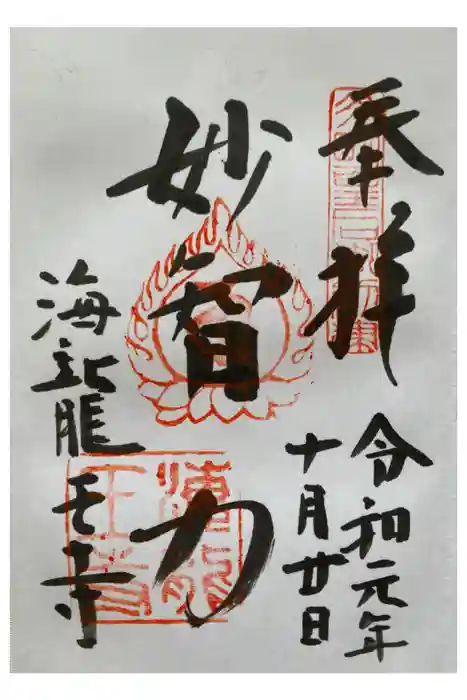 奉拝
令和元年
十月廿日
妙智力
海龍王寺